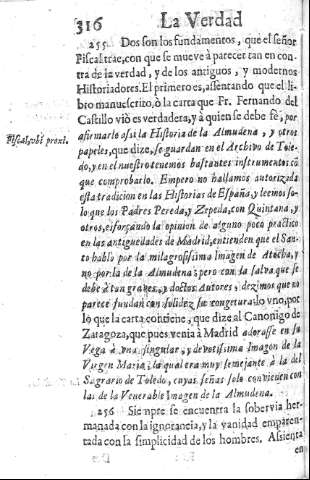 316 La Verdad
255. Dos son los fundamentos, que el señor
Fiscal trae, con que se mueve à parecer tan en con-
tra de la verdad, y de los antiguos, y modernos
Historiadores. El primero es, assentando que el li-
bro manuscrizo, ò la carta que Fr. Fernando del
Castillo viò es verdadera, y à quien se debe fè, por
Fiscal, vbi proxi.
afirmarlo assi la Historia de la Almudena, y otros
papeles, que dize, se guardan en el Archivo de Tole-
do, y en el nuestro tenemos bastantes instrumentos cõ
que comprobarlo. Empero no hallamos autorizada
esta tradicion en las Historias de España, y leemos so-
lo que los Padres Pereda, y Zepeda, con Quintana, y
otros, esforçando la opinion de alguno poco practico
en las antiguedades de Madrid, entienden que el San-
to hablo por la milagrosissima Imagen de Atocha, y
no por la de la Almudena; pero con la salva que se
debe à tan graves, y doctos Autores, dezimos que no
parece fundan con solidez su congetura; lo vno, por
lo que la carta contiene, que dize al Canonigo de
Zaragoza, que pues venia à Madrid adorasse en su
Vega à vna singular, y devotissima Imagen de la
Virgen Maria, la qual era muy semejante à la del
Sagrario de Toledo, cuyas señas solo convienen con
las de la Venerable Imagen de la Almudena.
256 Siempre se encuentra la sobervia her-
manada con la ignorancia, y la vanidad emparen-
tada con la simplicidad de los hombres. Assienta
en